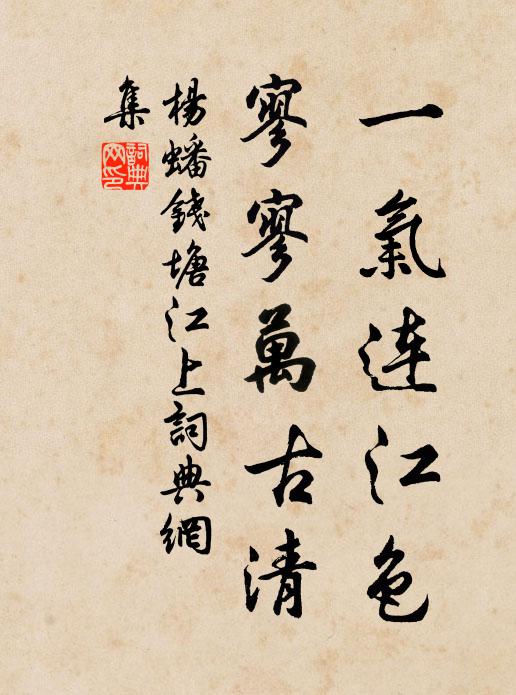 一氣連江色
寥寥萬古清
楊蟠錢塘江上詞典網
集
詞典
网印